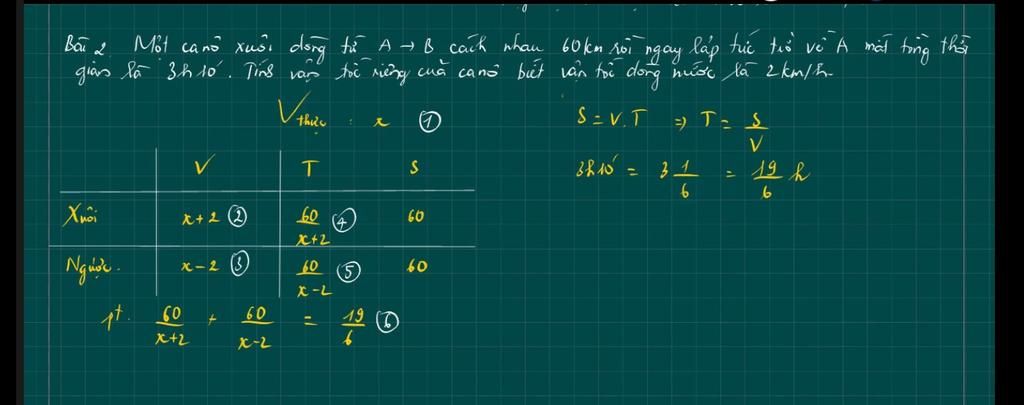 Bài 2 Một canô xuôi dòng từ A → B cách nhau 60km rồi ngay lập tức trở về A mất tổng thời
gian là 3h10'. Tính vận tốc riêng của canô biết vận tốc dòng nước là 2km/h
V thực : x ①
S = V.T ⇒ T = S/V
3h10' = 3 1/6 = 19/6 h
V T S
Xuôi x+2 ② 60/(x+2) ④ 60
Ngược. x-2 ③ 60/(x-2) ⑤ 60
pt. 60/(x+2) + 60/(x-2) = 19/6 ⑥